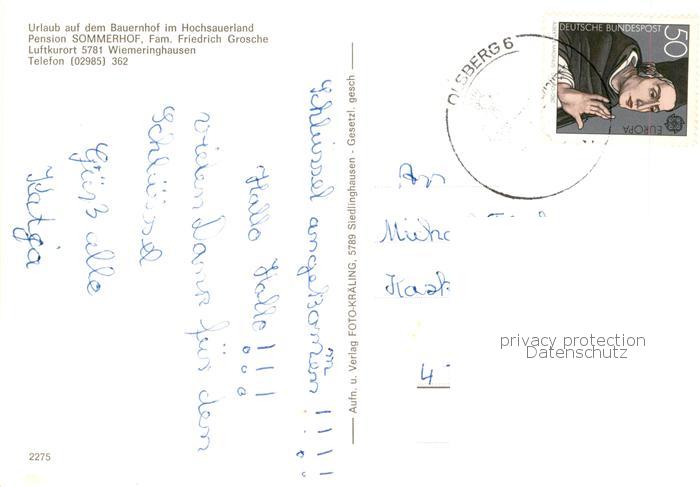 Urlaub auf dem Bauernhof im Hochsauerland
Pension SOMMERHOF, Fam. Friedrich Grosche
Luftkurort 5781 Wiemeringhausen
Telefon (02985) 362
Schlüssel angekommen !!!!
Hallo Halle !!!
vielen Dank für dem
Schlüssel
Grüß alle
Katja
2275
Aufn. u. Verlag FOTO-KRÄLING, 5789 Siedlinghausen - Gesetzl. gesch
OLSBERG 6
DEUTSCHE BUNDESPOST
50
EUROPA
An
4
privacy protection
Datenschutz